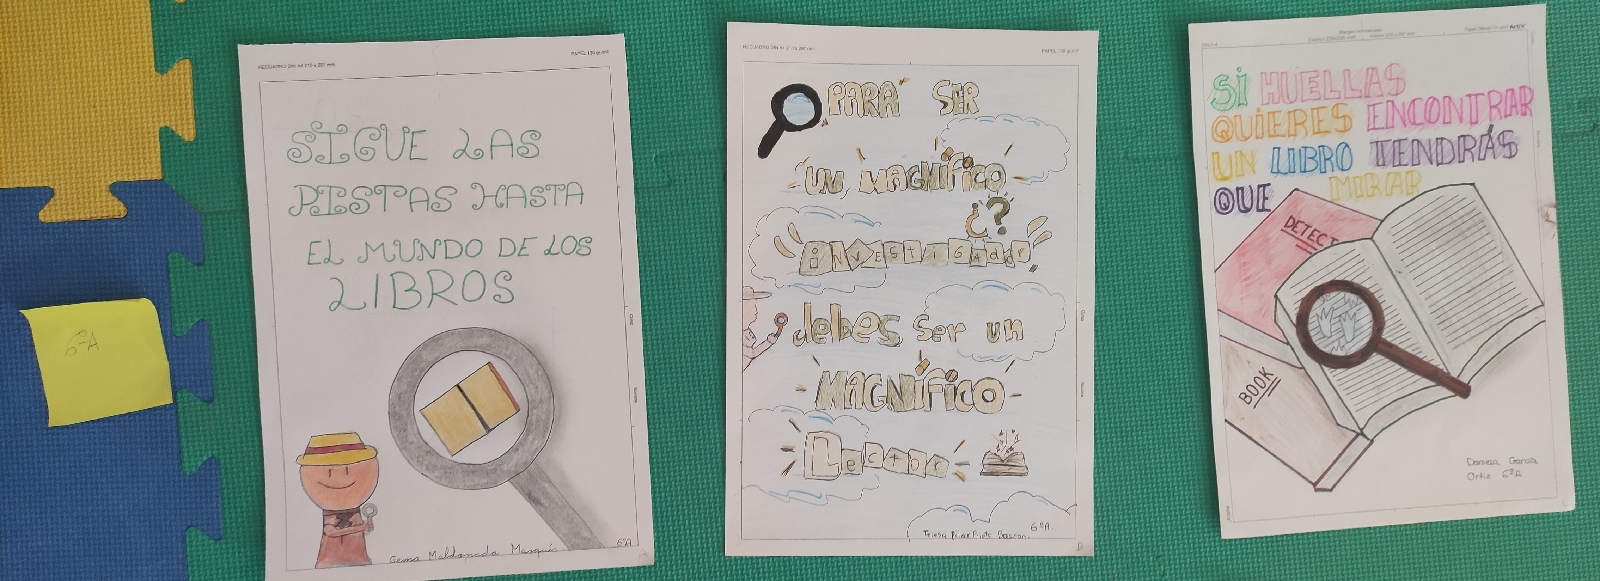 6ºA
RECUADRO DIN A4 210 x 297 mm
PAPEL 130 gr/m²
SIGUE LAS
PISTAS HASTA
EL MUNDO DE LOS
LIBROS
Gema Maldonado Marqués
6ºA
RECUADRO DIN A4 210 x 297 mm
PAPEL 130 gr/m²
PARA SER
UN MAGNÍFICO
¿?
INVESTIGADOR
debes ser un
MAGNÍFICO
Lector
Teresa
6ºA.
SI HUELLAS
QUIERES ENCONTRAR
UN LIBRO TENDRÁS
QUE MIRAR
DETECT
BOOK
Daniela García
Ortiz 6ºA